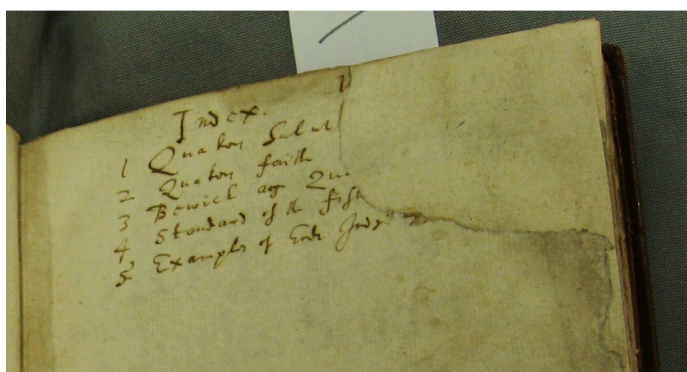 Index.
1 Quakers Salut
2 Quakers faith
3 Bewick ag Qu
4 Standard of th first
5 Examples of Gods Judg